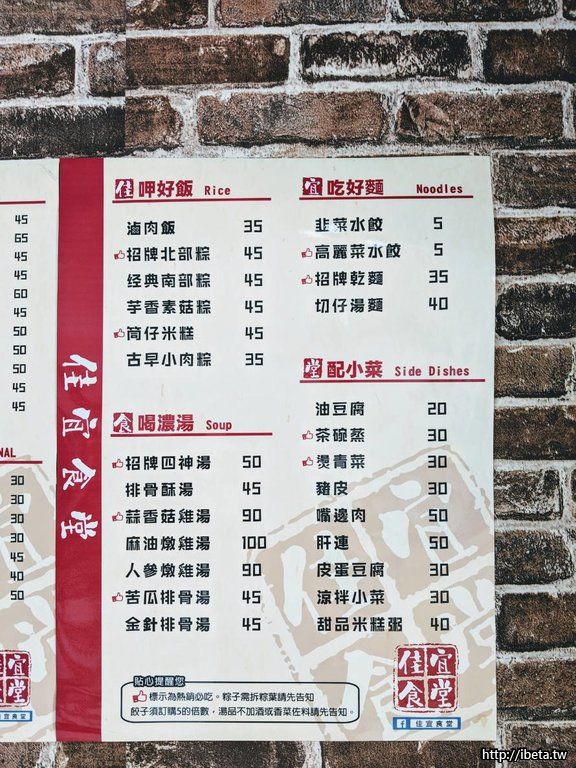 45
65
45
45
60
45
50
50
50
45
45
NAL
30
30
30
30
45
40
50
佳宜食堂
佳 呷好飯 Rice
滷肉飯 35
招牌北部粽 45
经典南部粽 45
芋香素菇粽 45
筒仔米糕 45
古早小肉粽 35
食 喝濃湯 Soup
招牌四神湯 50
排骨酥湯 45
蒜香菇雞湯 90
麻油燉雞湯 100
人參燉雞湯 90
苦瓜排骨湯 45
金針排骨湯 45
宜 吃好麵 Noodles
韭菜水餃 5
高麗菜水餃 5
招牌乾麵 35
切仔湯麵 40
堂 配小菜 Side Dishes
油豆腐 20
茶碗蒸 30
燙青菜 30
豬皮 30
嘴邊肉 50
肝連 50
皮蛋豆腐 30
涼拌小菜 30
甜品米糕粥 40
貼心提醒您
標示為熱銷必吃。粽子需拆粽葉請先告知
餃子須訂購5的倍數，湯品不加酒或香菜佐料請先告知。
佳宜食堂
f 佳宜食堂
宜
堂
食堂
http://ibeta.tw